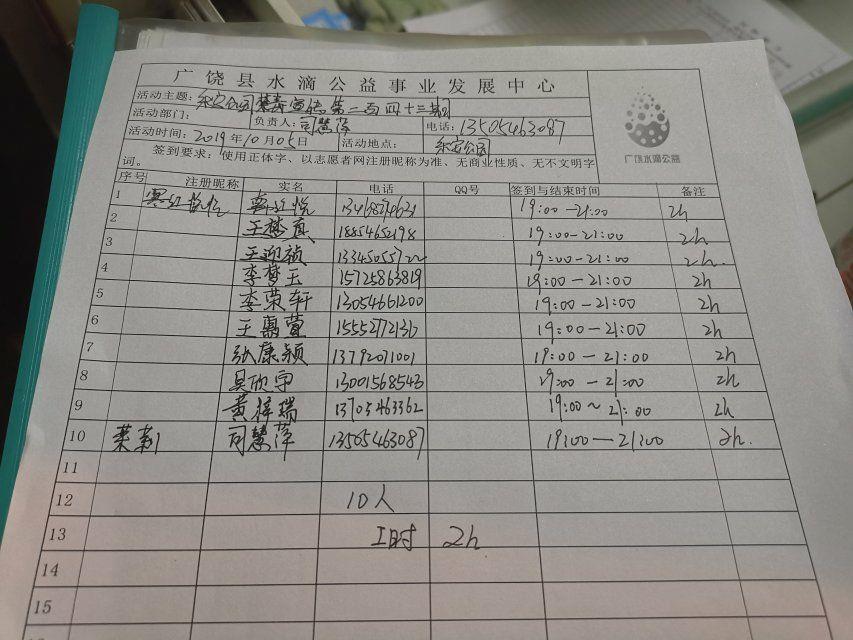 广饶县水滴公益事业发展中心
活动主题: 永安公司茉莉宣传第一百四十三期
活动部门: 负责人: 司慧萍 电话: 13505463087
活动时间: 2019年10月05日 活动地点: 永安公园
签到要求: 使用正体字、以志愿者网注册昵称为准、无商业性质、无不文明字
词。
广饶水滴公益
序号 注册昵称 实名 电话 QQ号 签到与结束时间 备注
1 19:00-21:00 2h
2 18854652198 19:00-21:00 2h
3 王迎祯 19:00-21:00 2h.
4 李梦玉 15725863819 19:00-21:00 2h
5 李荣轩 13054661200 19:00-21:00 2h
6 19:00-21:00 2h
7 张康颖 13792071001 19:00-21:00 2h
8 吴欣宇 13001568543 19:00-21:00 2h
9 黄梓瑞 13705463362 19:00~21:00 2h
10 茉莉 司慧萍 13505463087 19:00-21:00 2h.
11
12 10人
13 工时 2h
14
15